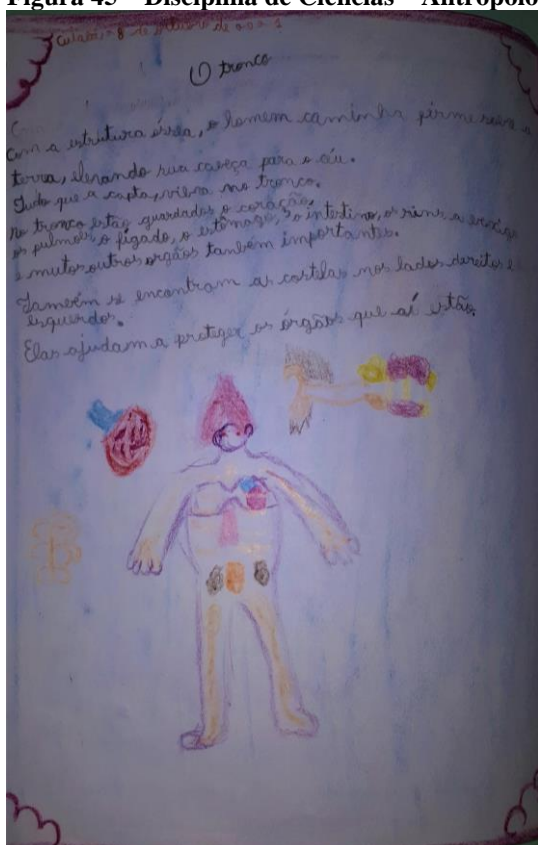 Figura 45 – Disciplina de Ciências – Antropolo
Cuiabá, 8 de de 2021
O tronco
Com a estrutura óssea, o homem caminha firme sobre a
terra, elevando sua cabeça para o céu.
Tudo que a capta, vibra no tronco.
no tronco estão guardados o coração,
os pulmões, o fígado, o estômago, o intestino, os rins, a
e muitos outros orgãos também importantes.
Também se encontram as costelas nos lados direito e
esquerdos.
Elas ajudam a proteger os órgãos que aí estão.